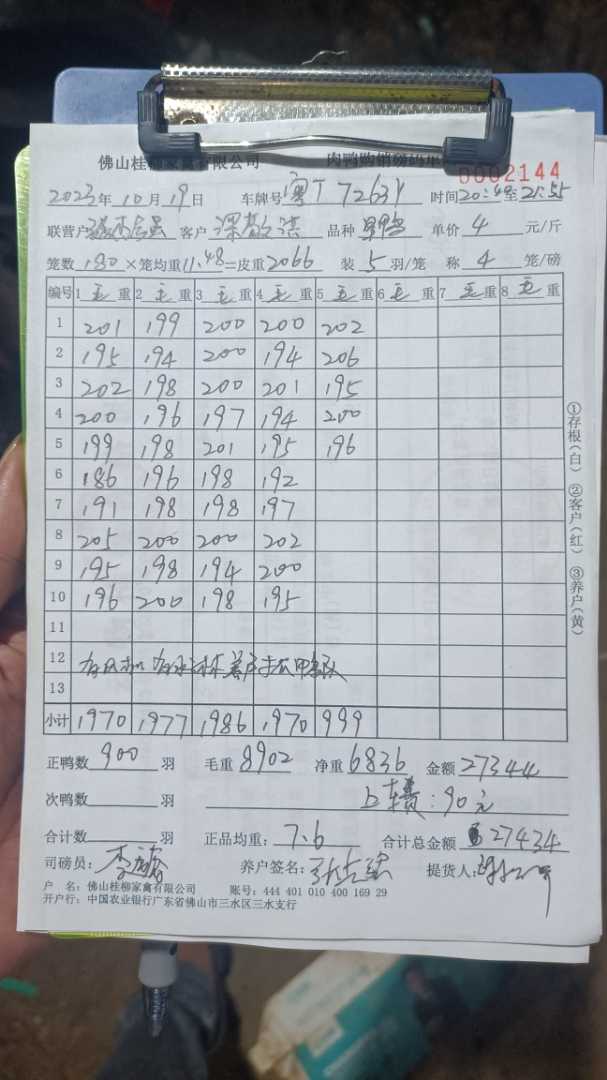 佛山桂柳家禽有限公司 肉鸭购销磅码单
0002144
2023年10月19日 车牌号 粤T 7263Y 时间20:48至21:55
联营户 客户 品种 单价 4 元/斤
笼数 180 ×笼均重11.48=皮重2066 装 5 羽/笼 称 4 笼/磅
编号 1 毛 重 2 毛 重 3 毛 重 4 毛 重 5 毛 重 6 毛 重 7 毛 重 8 毛 重
1 201 199 200 200 202
2 195 194 200 194 206
3 202 198 200 201 195
4 200 196 197 194 200
5 199 198 201 195 196
6 186 196 198 192
7 191 198 198 197
8 205 200 200 202
9 195 198 194 200
10 196 200 198 195
11
12
13
小计 1970 1977 1986 1970 999
正鸭数 900 羽 毛重 8902 净重 6836 金额 27344
次鸭数 羽 上车费:90元
合计数 羽 正品均重: 7.6 合计总金额 27434
司磅员: 养户签名: 提货人:
户 名:佛山桂柳家禽有限公司 账号:444 401 010 400 169 29
开户行:中国农业银行广东省佛山市三水区三水支行
①存根(白) ②客户(红) ③养户(黄)